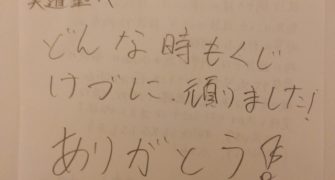 どんな時もくじ
けづに、頑りました!
ありがとう!